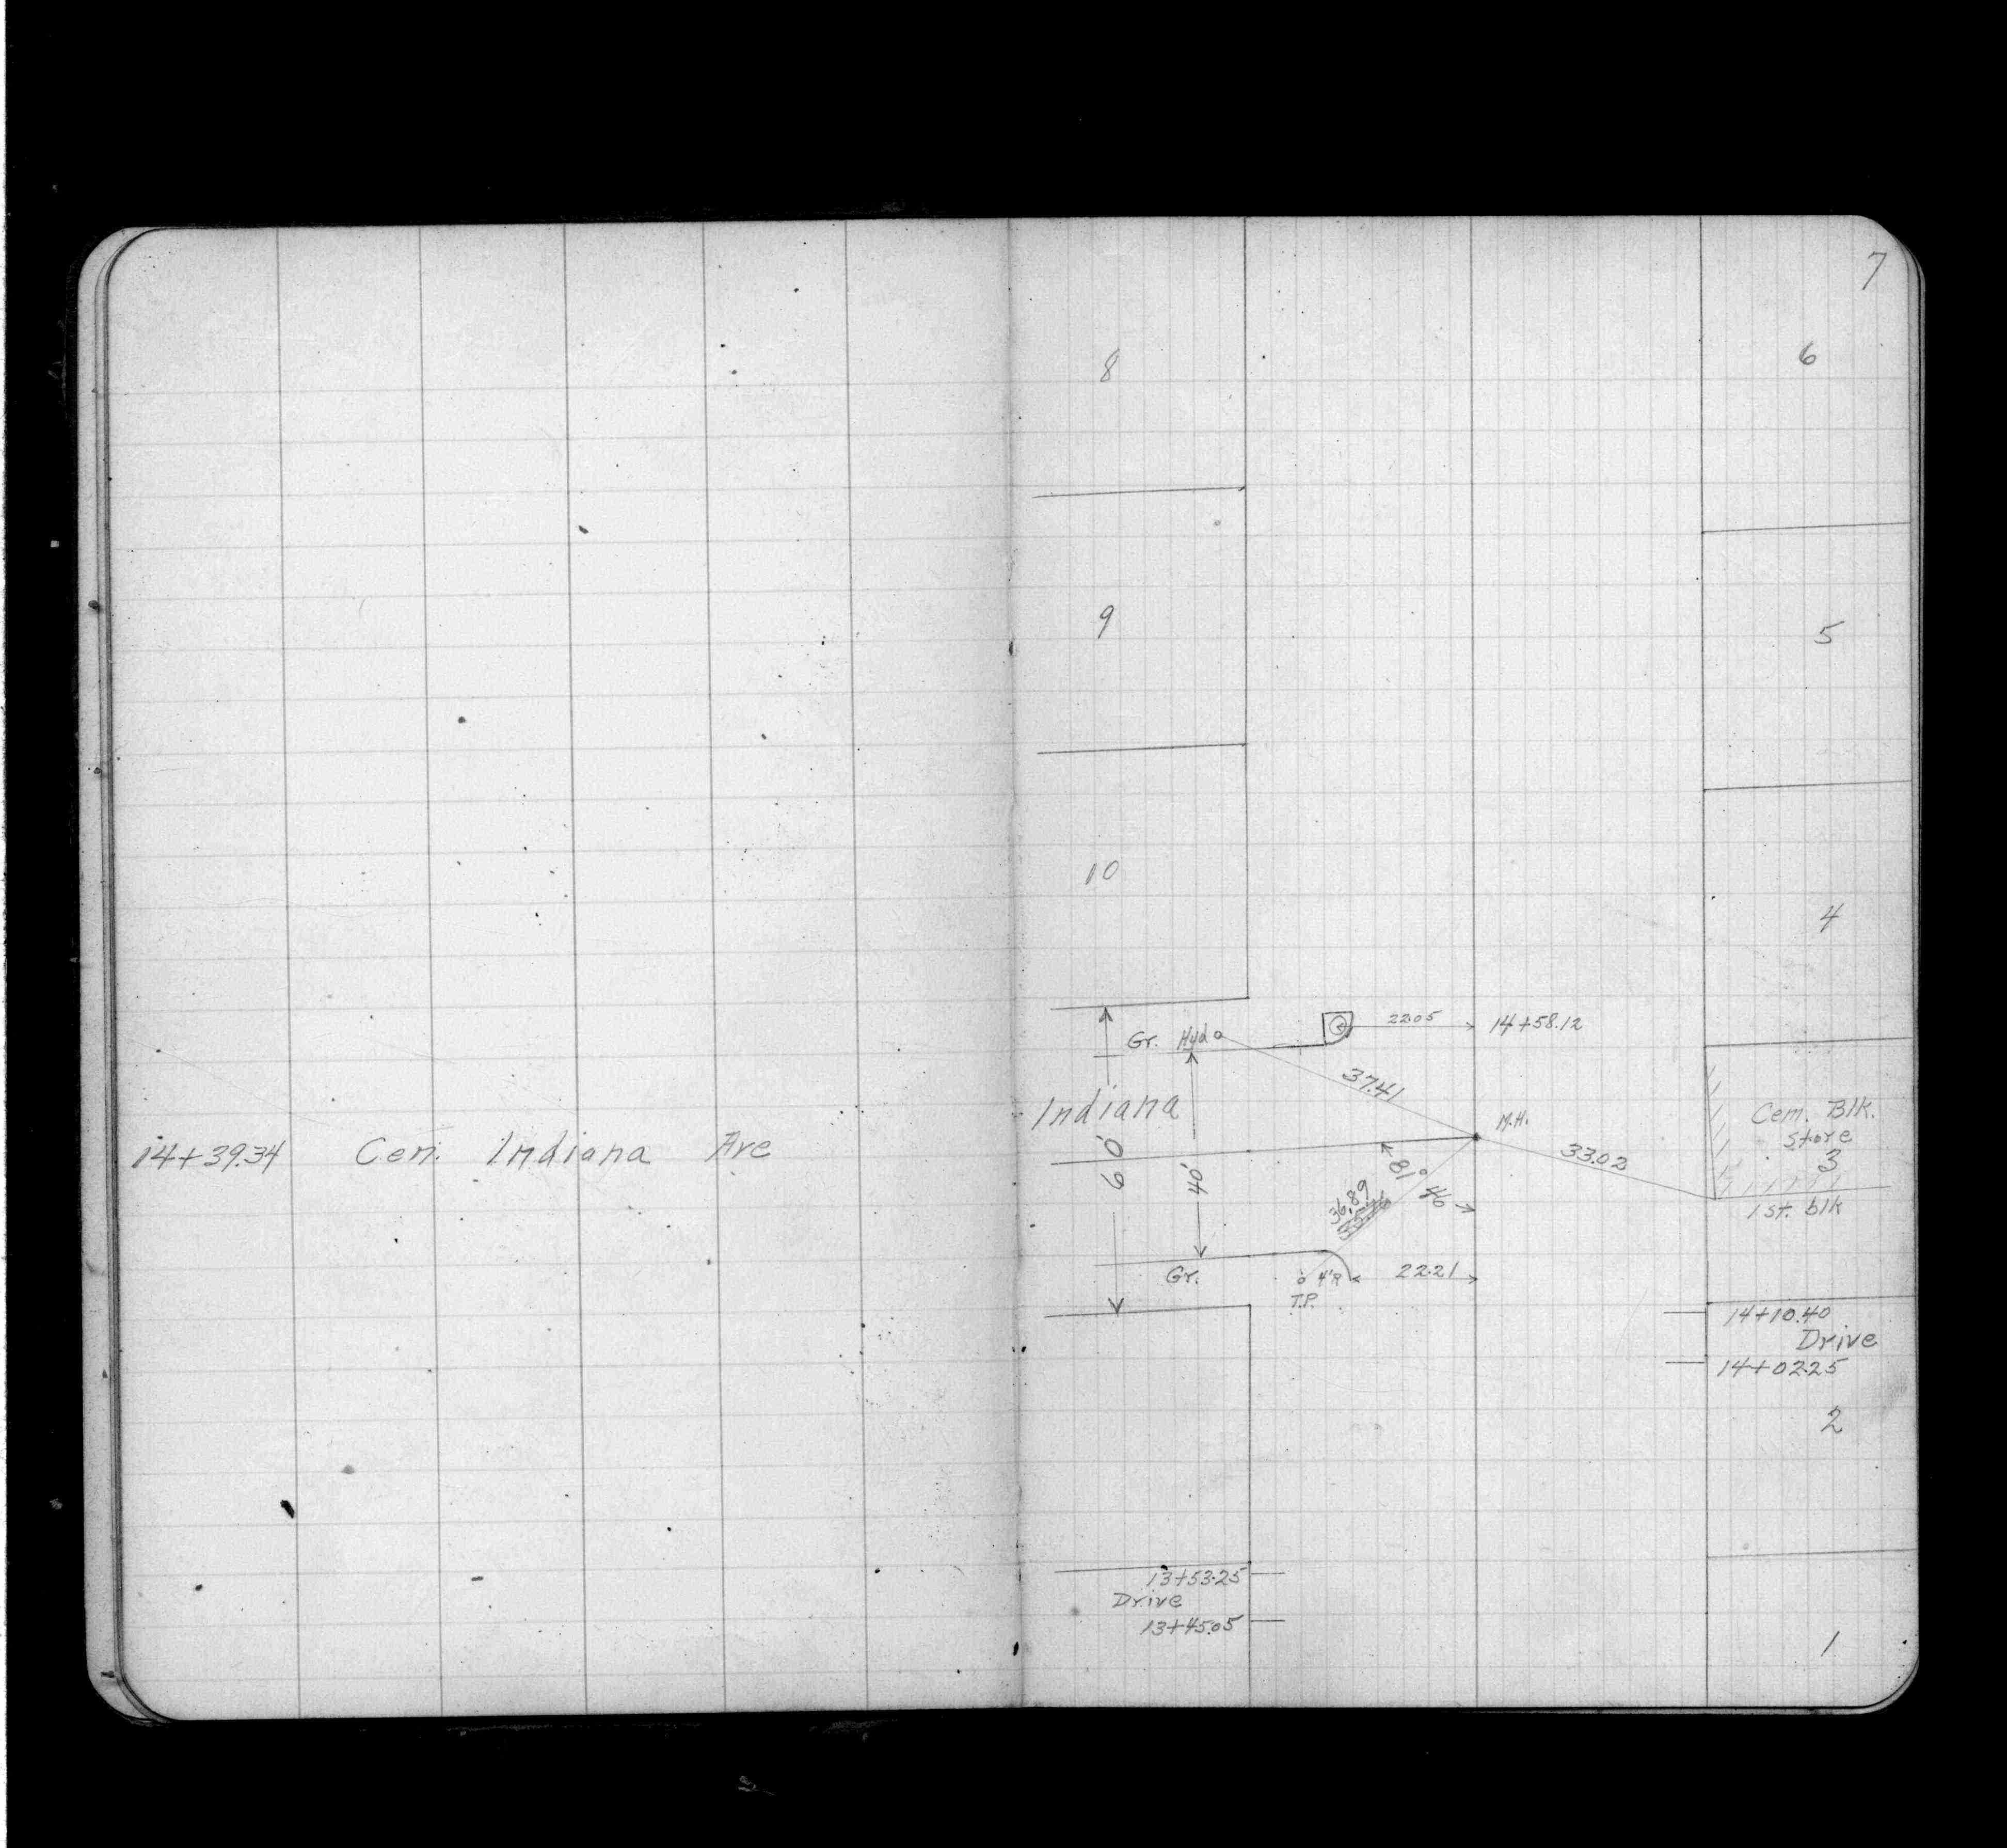 7
8
6
9
5
10
4
22.05
14+58.12
Gr. Hyd
37.41
Indiana
M.H.
Cem. Blk.
Store
3
14+39.34 Cen. Indiana Ave
60'
40'
81° 40
33.02
1st. blk
36.89
Gr.
4'R
22.21
T.P.
14+10.40
Drive
14+02.25
2
13+53.25
Drive
13+45.05
1